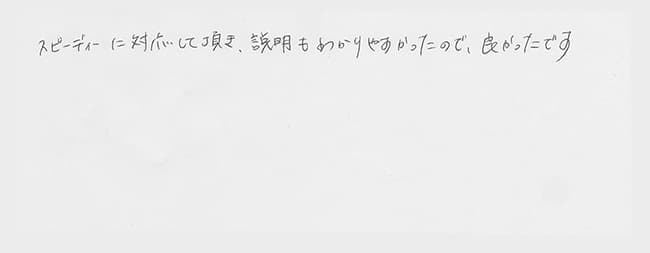 スピーディーに対応して頂き、説明もわかりやすかったので、良かったです